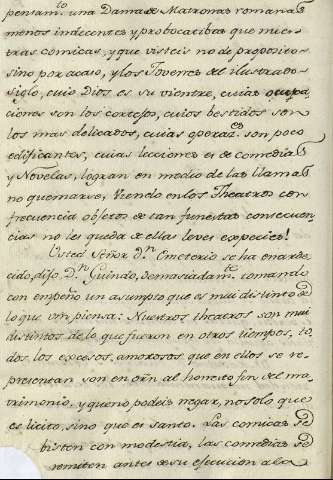 pensamto. una Dama de Matronas romanas
menos indecentes y probocatibas que nues-
tras comicas, y que visteis no de proposito-
sino por acaso, y los Jovenes del ilustrado-
siglo, cuio Dios es su vientre, cuias ocupa
ciones son los cortejos, cuios bestidos son
los mas delicados, cuias operazs. son poco
edificantes, cuias lecciones es de comedias
y Novelas, logran en medio de las llamas
no quemarse, Viendo en los Theatros con
frecuencia objetos de tan funestas consecuen-
cias no les queda de ellas leves especies!
Usted Señor dn. Emeterio se ha enarde
cido, dijo Dn. Guindo, demasiadamte. tomando
con empeño un asumpto que es mui distinto de
lo que vm piensa: Nuestros theatros son mui
distintos de lo que fueron en otros tiempos, to-
dos los excesos, amorosos que en ellos se re-
presentan son en orn al honesto fin del ma-
trimonio, y que no podeis negar, no solo que
es licito, sino que es santo. Las comicas se
bisten con modestia, las comedias se
remiten antes de su ejecucion a la